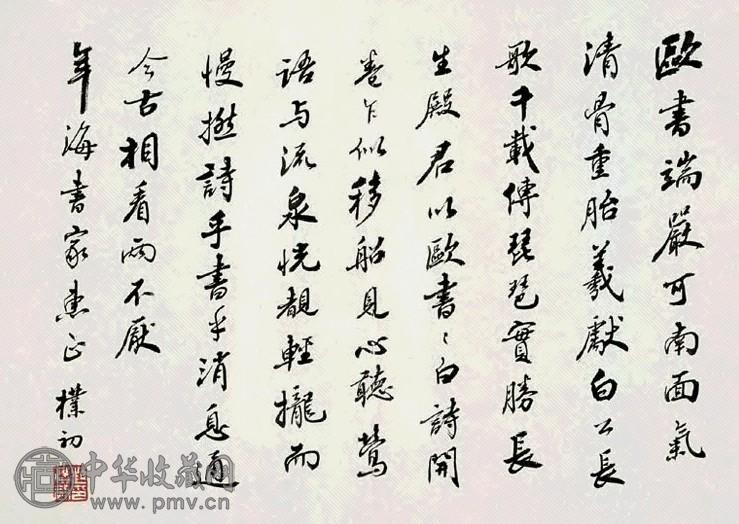 歐書端嚴可南面氣
清骨重胎羲獻白公長
歌千載傳琵琶實勝長
生殿君以歐書〻白詩開
卷乍似移船見心聽鶯
語与流泉恍覩輕攏而
慢撚詩乎書乎消息通
今古相看兩不厭
年海書家惠正 樸初
中华收藏网
www.pmv.cn